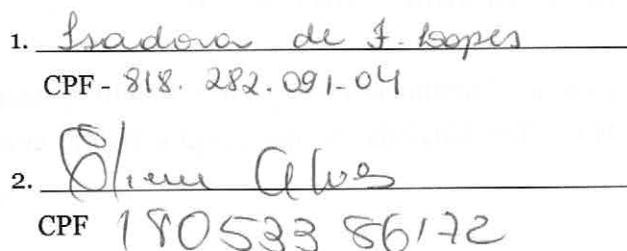 1. Isadora de F. Lopes
CPF - 818. 282.091-04
2. Eliene Alves
CPF 180533 86172